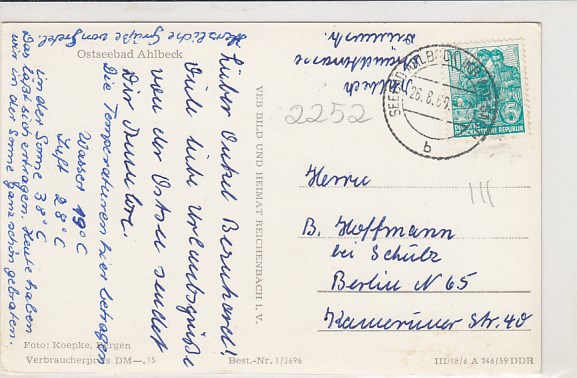 Ostseebad Ahlbeck
Lieber Onkel Bernhard!
Viele liebe Urlaubsgrüße
von der Ostsee sendet
Dir Annelore.
Die Temperaturen hier betragen
Wasser 19°C
Luft 28°C
in der Sonne 38°C
Das läßt sich ertragen. Heute haben
wir in der Sonne ganz schön gebraten.
Herzliche Grüße von Gretel.
Foto: Koepke, Bergen
Verbraucherpreis DM —.15
Best.-Nr. 1/2696
VEB BILD UND HEIMAT REICHENBACH i. V.
Ahlbeck
2252
SEEBAD AHLBECK
26.8.60
b
DEUTSCHE
DEMOKRATISCHE REPUBLIK
Herrn
B. Hoffmann
bei Schulz
Berlin N 65
Kameruner Str. 40
III/18/6 A 246/59 DDR